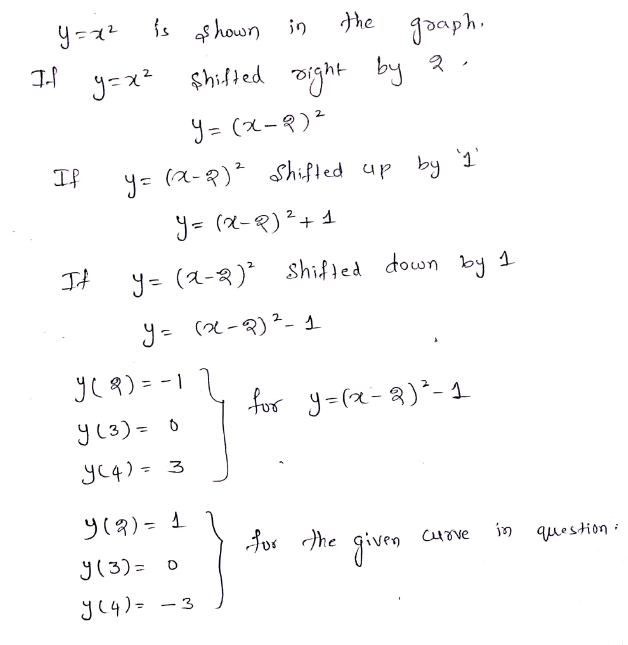 y=x² is shown in the graph.
If y=x² shifted right by 2.
y= (x-2)²
If y= (x-2)² shifted up by '1'
y= (x-2)²+1
If y= (x-2)² shifted down by 1
y= (x-2)²-1
y(2)=-1
y(3)= 0
y(4)= 3
} for y=(x-2)²-1
y(2)= 1
y(3)= 0
y(4)= -3
} for the given curve in question: